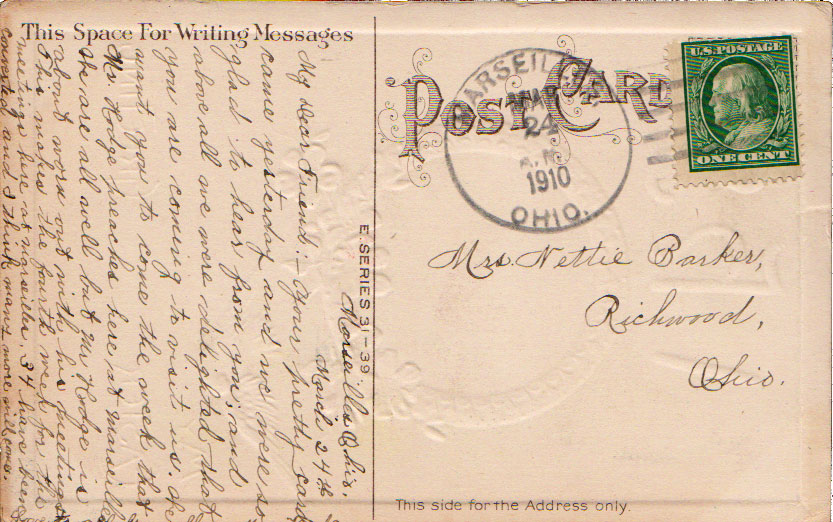 This Space For Writing Messages
POST CARD
MARSEILLES
MAR
24
A.M.
1910
OHIO.
U.S. POSTAGE
ONE CENT
Mrs. Nettie Barker,
Richwood,
Ohio.
E. SERIES 31-39
This side for the Address only.
Marseilles Ohio.
March 24th
My Dear Friend:- Your pretty card
came yesterday and we were so
glad to hear from you, and
above all we were delighted that
you are coming to visit us. We
want you to come the week that
Mr. Hodge preaches here at Marseilles
We are all well but Mr Hodge is
about worn out with his meetings
This makes the fourth week for the
meetings here at Marseilles. 34 have been
converted and I think many more will come.